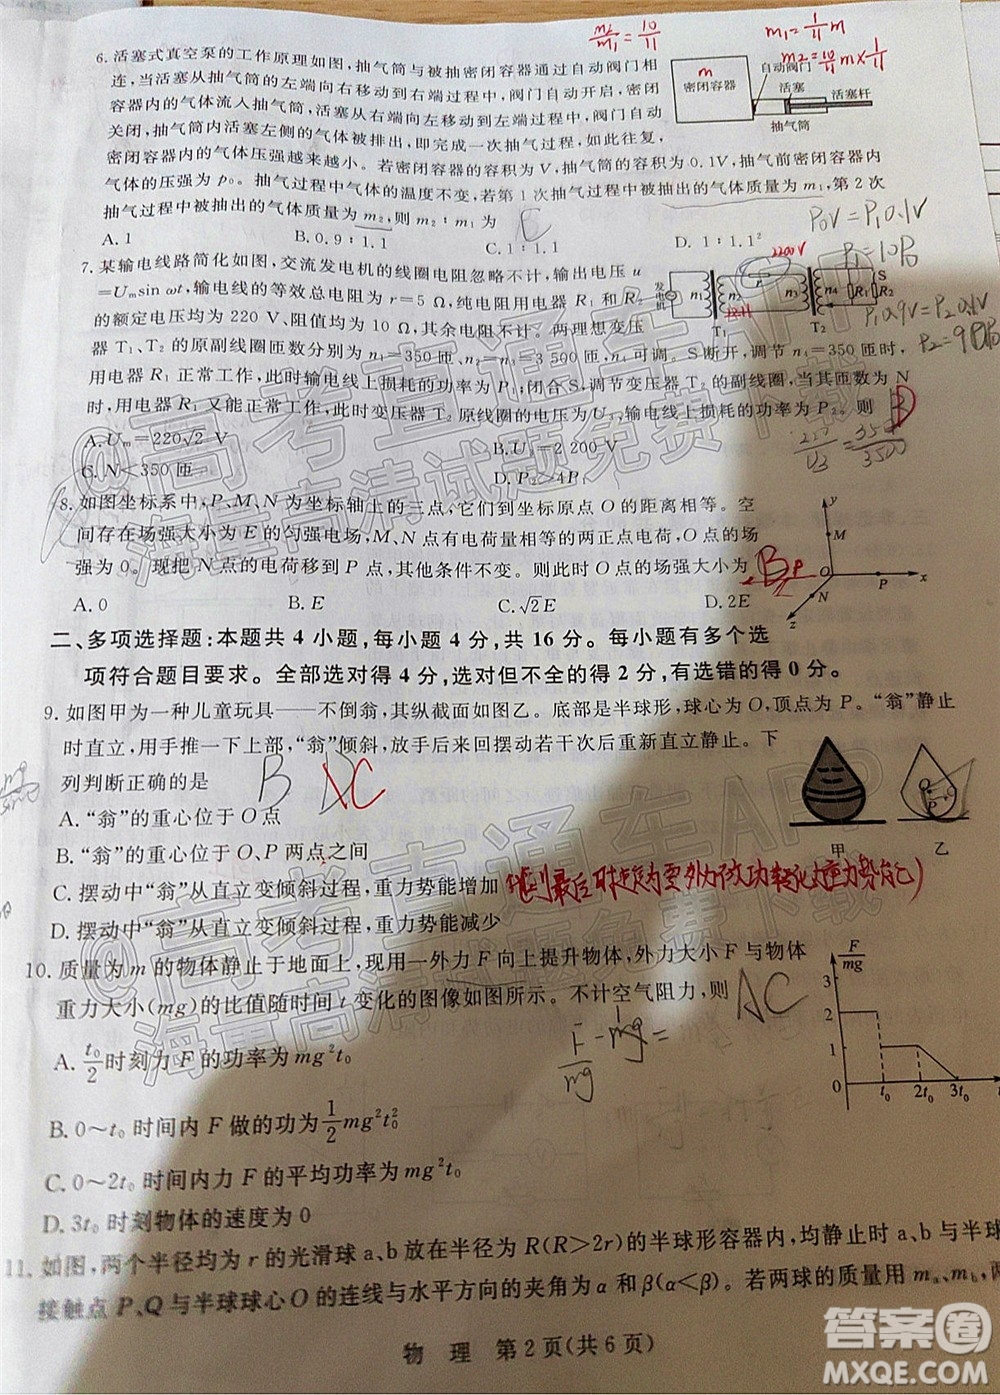 6. 活塞式真空泵的工作原理如图,抽气筒与被抽密闭容器通过自动阀门相
连,当活塞从抽气筒的左端向右移动到右端过程中,阀门自动开启,密闭
容器内的气体流入抽气筒,活塞从右端向左移动到左端过程中,阀门自动
关闭,抽气筒内活塞左侧的气体被排出,即完成一次抽气过程,如此往复,
密闭容器内的气体压强越来越小。若密闭容器的容积为 V,抽气筒的容积为 0.1V,抽气前密闭容器内
气体的压强为 p₀。抽气过程中气体的温度不变,若第 1 次抽气过程中被抽出的气体质量为 m₁,第 2 次
抽气过程中被抽出的气体质量为 m₂,则 m₂∶m₁ 为
A. 1 B. 0.9∶1.1 C. 1∶1.1 D. 1∶1.1²
m₂/m₁=10/11
m₁=1/11 m
m₂=10/11 m×1/11
m
密闭容器
自动阀门
活塞
活塞杆
抽气筒
P₀V=P₁0.1V
P₁=10P₀
P₁0.9V=P₂0.1V
7. 某输电线路简化如图,交流发电机的线圈电阻忽略不计,输出电压 u
=Uₘsin ωt,输电线的等效总电阻为 r=5 Ω,纯电阻用电器 R₁ 和 R₂
的额定电压均为 220 V、阻值均为 10 Ω,其余电阻不计。两理想变压
器 T₁、T₂ 的原副线圈匝数分别为 n₁=350 匝、n₂=n₃=3 590 匝,n₄ 可调。S 断开,调节 n₄=350 匝时,
用电器 R₁ 正常工作,此时输电线上损耗的功率为 P₁;闭合 S,调节变压器 T₂ 的副线圈,当其匝数为 N
时,用电器 R₁ 又能正常工作,此时变压器 T₂ 原线圈的电压为 U₃,输电线上损耗的功率为 P₂。则
A. Uₘ=220√2 V B. U₃=2 200 V
C. N<350 匝 D. P₂>4P₁
2200V
发电机
n₁ n₂ r n₃ n₄ R₁ R₂ S
T₁ T₂
D
8. 如图坐标系中,P、M、N 为坐标轴上的三点,它们到坐标原点 O 的距离相等。空
间存在场强大小为 E 的匀强电场,M、N 点有电荷量相等的两正点电荷,O 点的场
强为 0。现把 N 点的电荷移到 P 点,其他条件不变。则此时 O 点的场强大小为
A. 0 B. E C. √2 E D. 2E
B
y
M
O P x
N
z
二、多项选择题:本题共 4 小题,每小题 4 分,共 16 分。每小题有多个选
项符合题目要求。全部选对得 4 分,选对但不全的得 2 分,有选错的得 0 分。
9. 如图甲为一种儿童玩具——不倒翁,其纵截面如图乙。底部是半球形,球心为 O,顶点为 P。“翁”静止
时直立,用手推一下上部,“翁”倾斜,放手后来回摆动若干次后重新直立静止。下
列判断正确的是
B D
AC
A. “翁”的重心位于 O 点
B. “翁”的重心位于 O、P 两点之间
C. 摆动中“翁”从直立变倾斜过程,重力势能增加
D. 摆动中“翁”从直立变倾斜过程,重力势能减少
O
P
甲 乙
10. 质量为 m 的物体静止于地面上,现用一外力 F 向上提升物体,外力大小 F 与物体
重力大小(mg)的比值随时间 t 变化的图像如图所示。不计空气阻力,则
AC
A. t₀/2 时刻力 F 的功率为 mg²t₀
B. 0～t₀ 时间内 F 做的功为 1/2 mg²t₀²
C. 0～2t₀ 时间内力 F 的平均功率为 mg²t₀
D. 3t₀ 时刻物体的速度为 0
F/mg
3
2
1
0 t₀ 2t₀ 3t₀ t
11. 如图,两个半径均为 r 的光滑球 a、b 放在半径为 R(R>2r)的半球形容器内,均静止时 a、b 与半球
接触点 P、Q 与半球球心 O 的连线与水平方向的夹角为 α 和 β(α<β)。若两球的质量用 mₐ、m_b、两
物 理 第 2 页(共 6 页)
@高考直通车APP
海量高清试题免费下载
@高考直通车APP
海量高清试题免费下载
答案圈
MXQE.COM